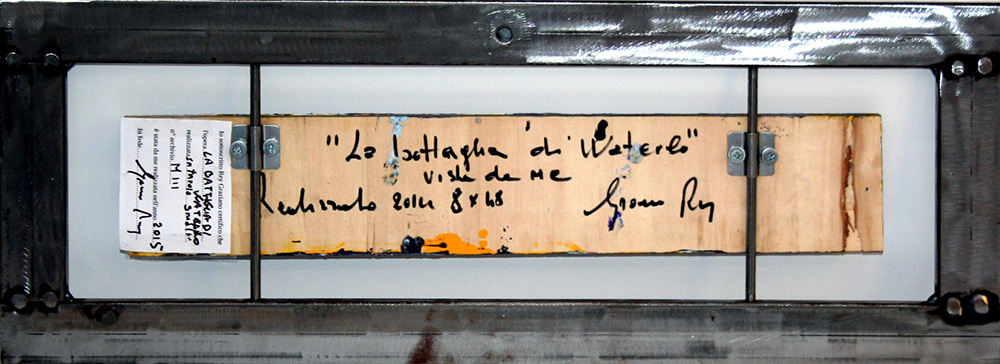 "La battaglia di Waterlo"
vista da me
Realizzato 2014 8x48
Rey
Io sottoscritto Rey Graziano certifico che
l'opera LA BATTAGLIA DI WATERLO
realizzata SU TAVOLA SMALTI
n° archivio M III
è stata da me realizzata nell'anno 2015
In fede